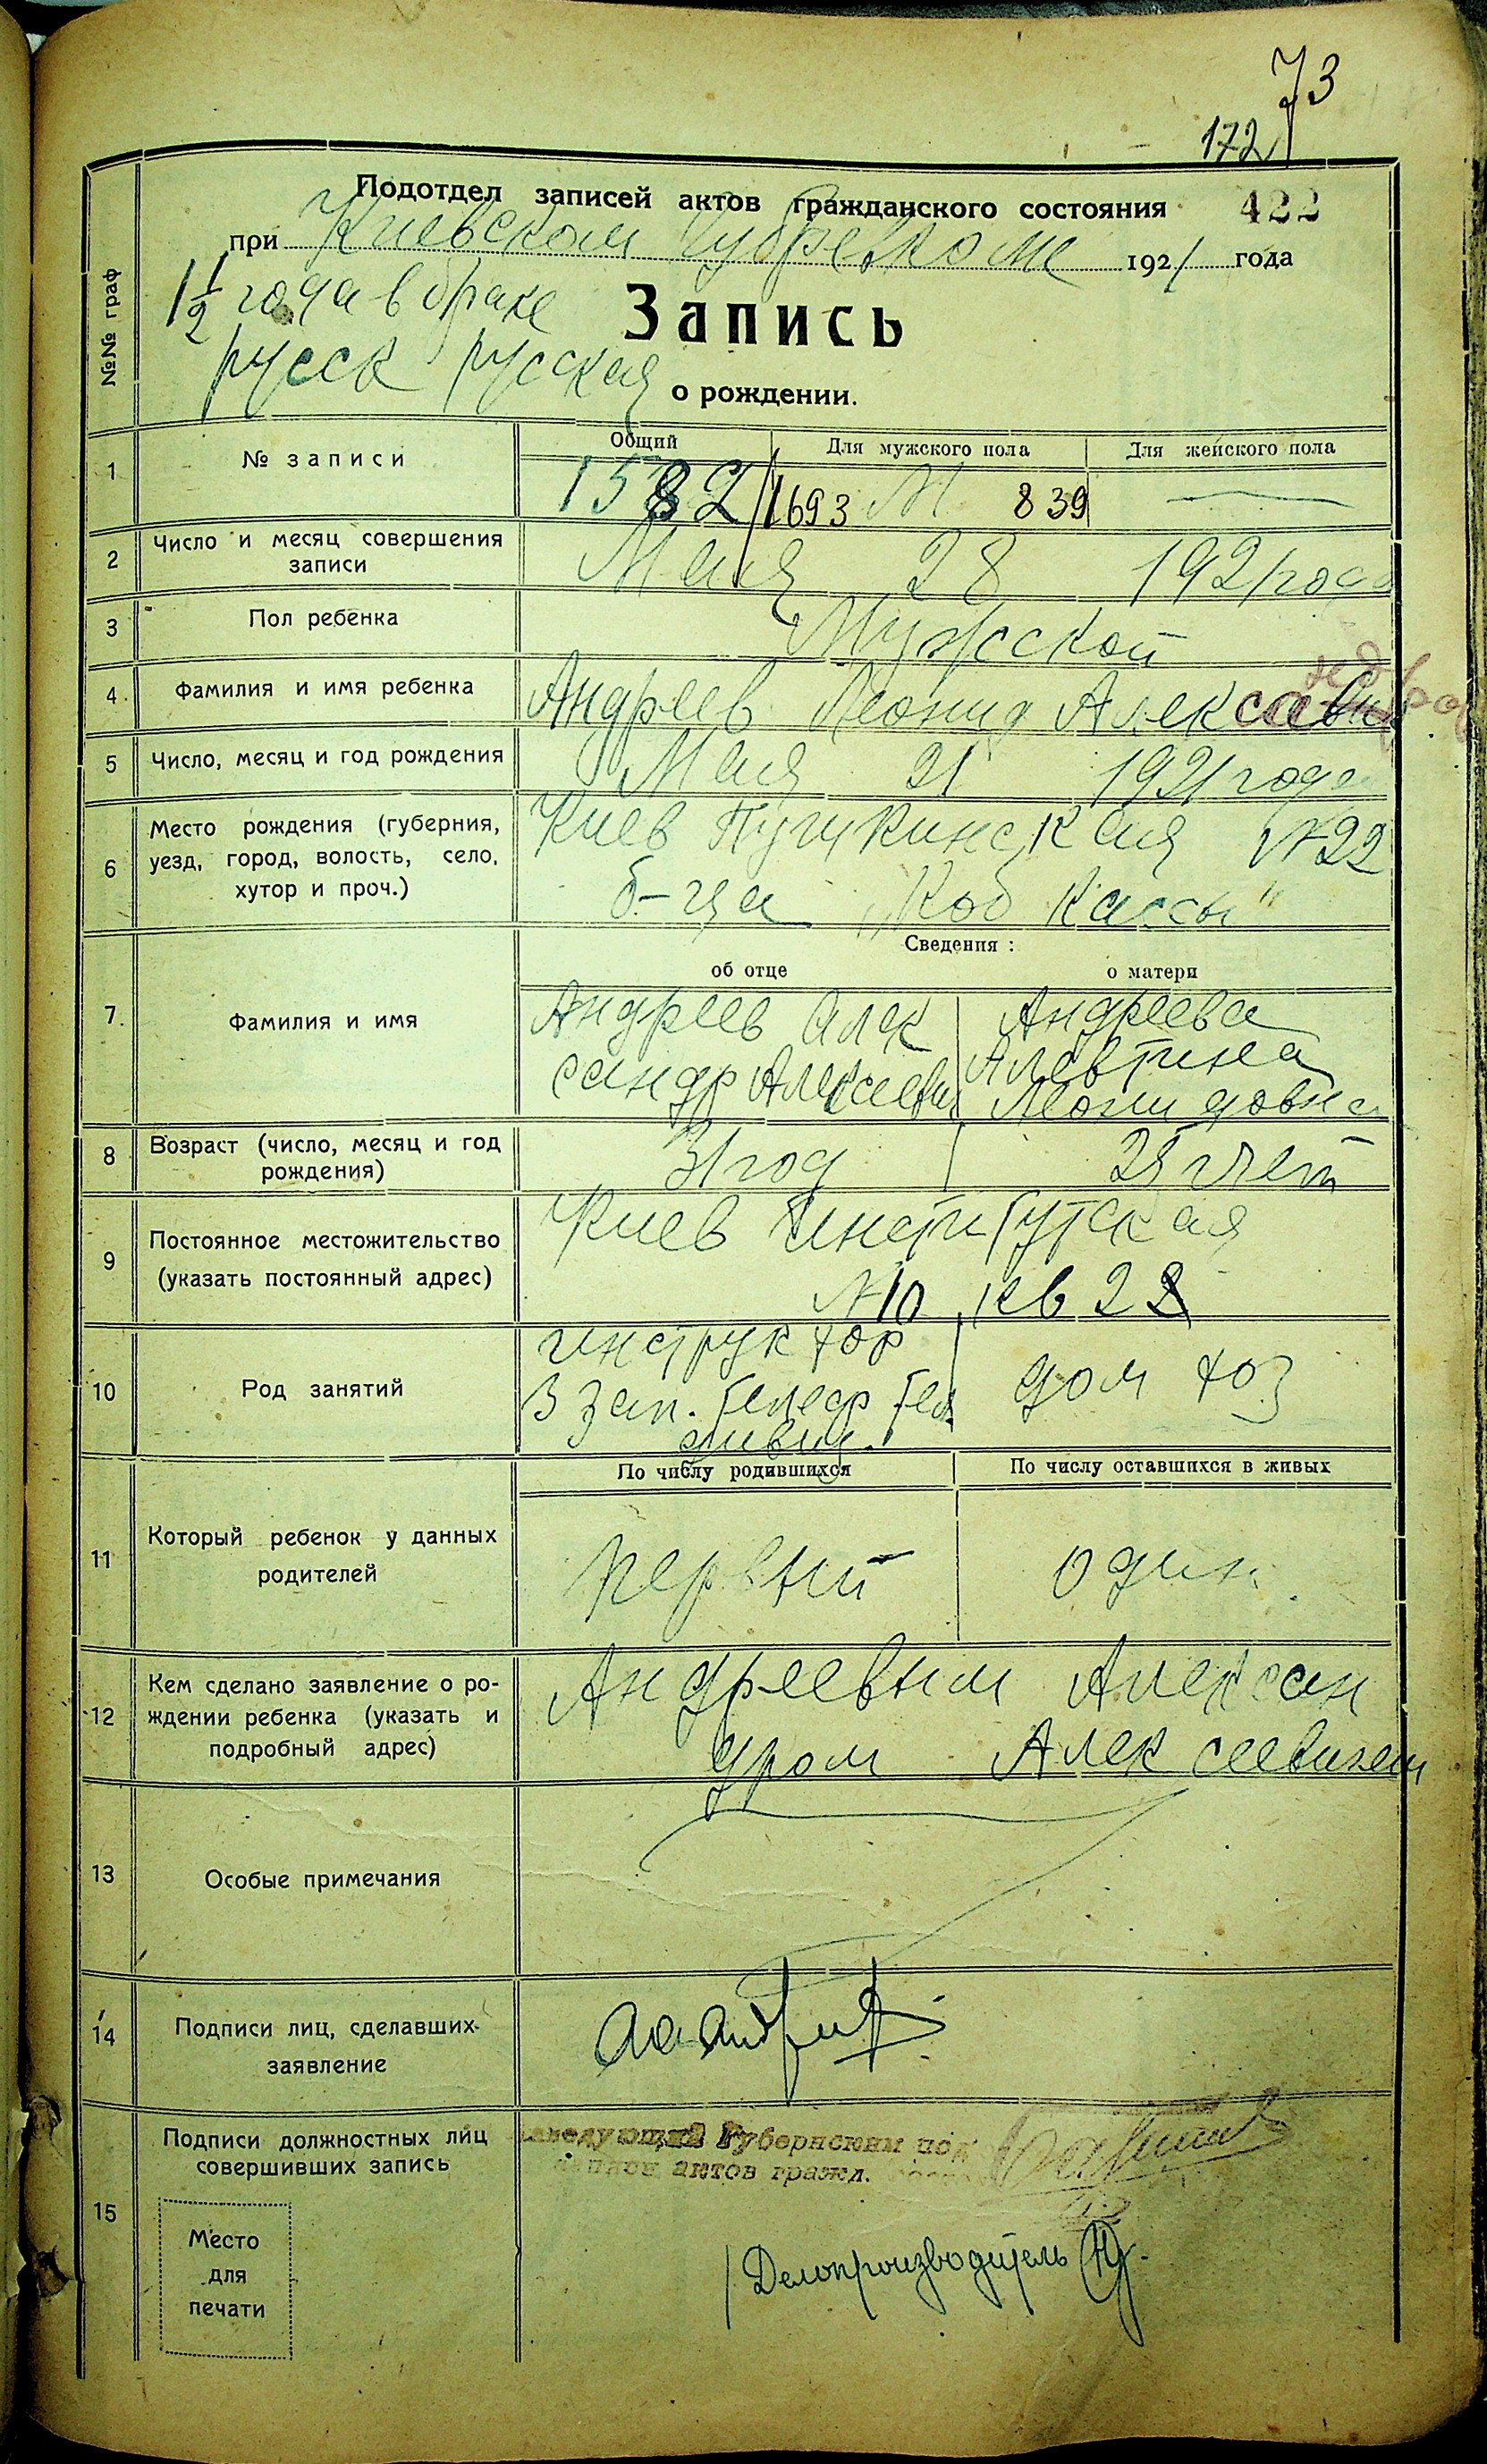 73
172
Подотдел записей актов гражданского состояния 422
при Киевском Губревкоме 1921 года
1½ года в браке
Запись
русск русская
о рождении.
№№ граф
Общий Для мужского пола Для женского пола
1 № записи 1582/1693 М 839 —
2 Число и месяц совершения
записи
Мая 28 1921 года
3 Пол ребенка Мужской
4. Фамилия и имя ребенка Андреев Леонид
5 Число, месяц и год рождения Мая 21 1921 года
6 Место рождения (губерния,
уезд, город, волость, село,
хутор и проч.)
Киев Пушкинская №22
б-ца
Сведения:
об отце о матери
7. Фамилия и имя
Андреев Алек
сандр Алексеевич
Андреева
Алевтина
Леонидовна
8 Возраст (число, месяц и год
рождения)
31 год лет
9 Постоянное местожительство
(указать постоянный адрес)
Киев Институтская
№10 кв 28
10 Род занятий
инструктор
3 зап. телегр
дом хоз
По числу родившихся По числу оставшихся в живых
11 Который ребенок у данных
родителей
первый один
12 Кем сделано заявление о ро-
ждении ребенка (указать и
подробный адрес)
Андреевым Алексан
дром Алексеевичем
13 Особые примечания
14 Подписи лиц, сделавших
заявление
15 Подписи должностных лиц
совершивших запись
Заведующий Губернским под
записи актов гражд.
Место
для
печати
Делопроизводитель